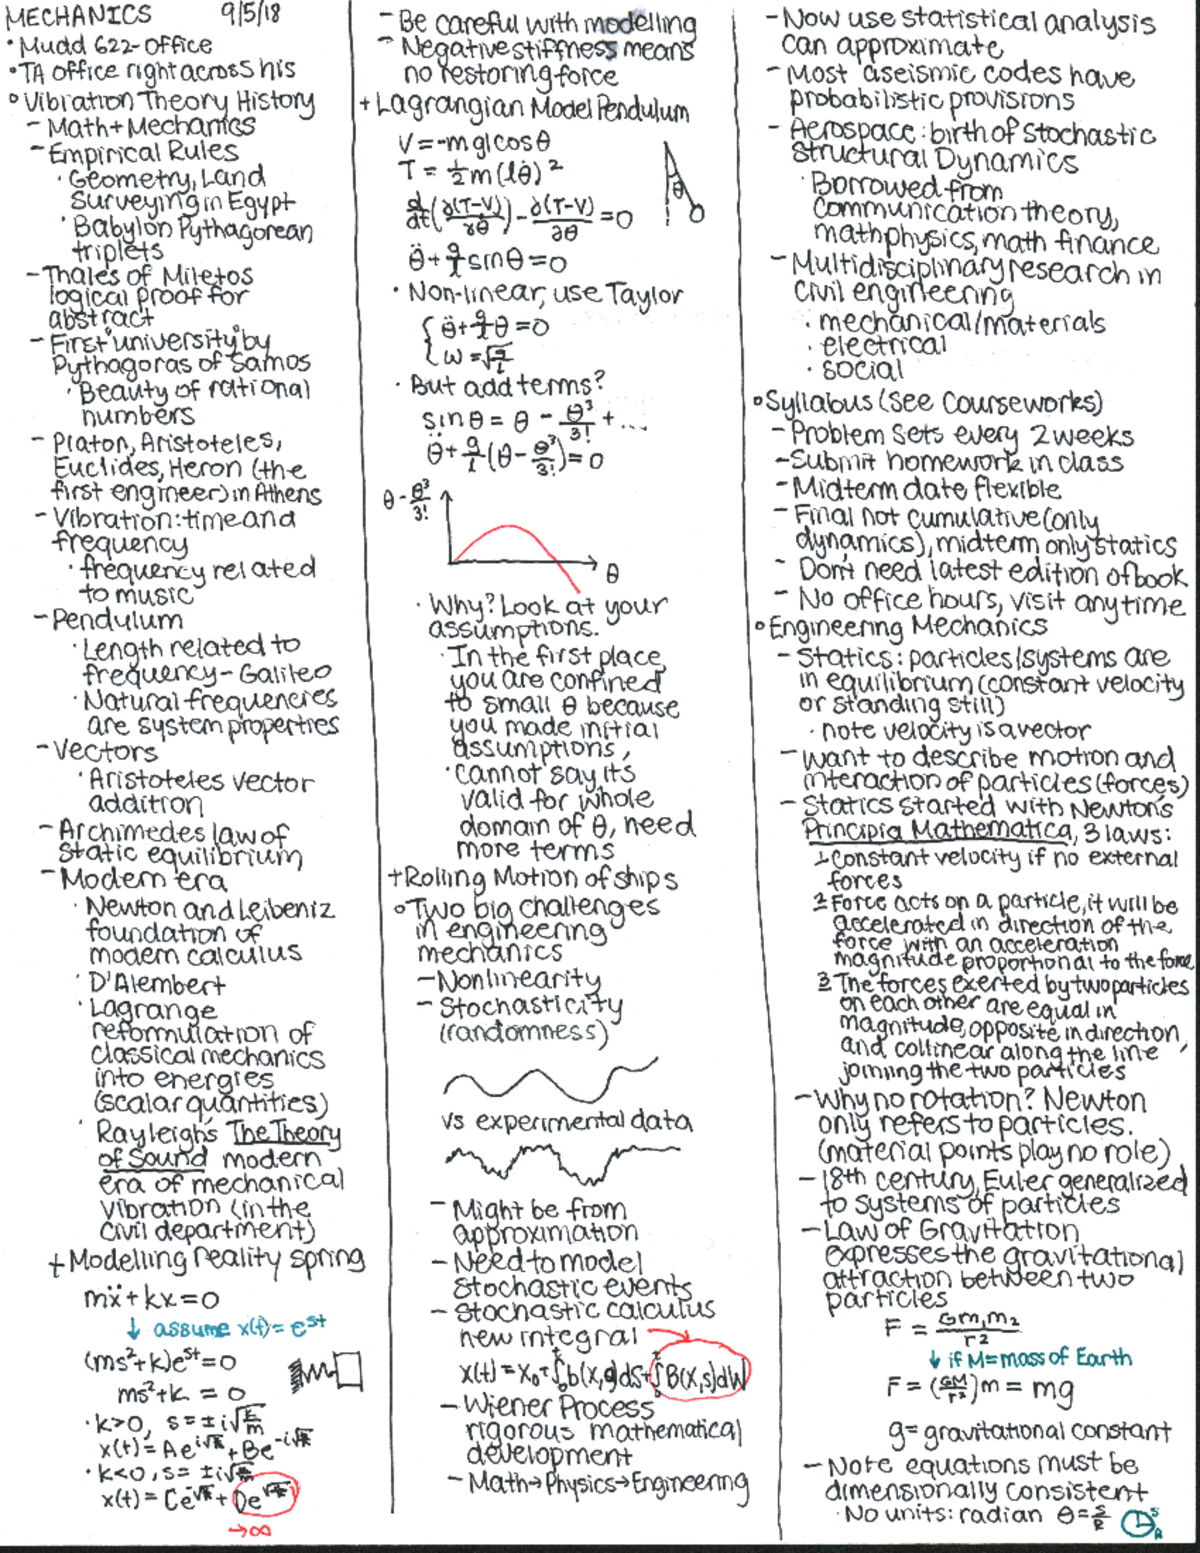 MECHANICS 9/5/18
• Mudd 622-office
• TA office right across his
∘ Vibration Theory History
- Math + Mechanics
- Empirical Rules
· Geometry, Land
Surveying in Egypt
· Babylon Pythagorean
triplets
- Thales of Miletos
logical proof for
abstract
- First "university" by
Pythagoras of Samos
· Beauty of rational
numbers
- Platon, Aristoteles,
Euclides, Heron (the
first engineer) in Athens
- Vibration: time and
frequency
· frequency related
to music
- Pendulum
· Length related to
frequency - Galileo
· Natural frequencies
are system properties
- Vectors
· Aristoteles vector
addition
- Archimedes law of
static equilibrium
- Modern era
· Newton and Leibeniz
foundation of
modern calculus
· D'Alembert
· Lagrange
reformulation of
classical mechanics
into energies
(scalar quantities)
· Rayleigh's The Theory
of Sound modern
era of mechanical
vibration (in the
civil department)
+ Modelling reality spring
mẍ + kx = 0
↓ assume x(t) = e^st
(ms²+k)e^st = 0
ms²+k = 0
· k>0, s = ±i√(k/m)
x(t) = Ae^(i√(k/m)) + Be^(-i√(k/m))
· k<0, s = ±i√(k/m)
x(t) = Ce^(-√(k/m)) + De^(√(k/m))
→∞
- Be careful with modelling
- Negative stiffness means
no restoring force
+ Lagrangian Model Pendulum
V = -mgl cos θ
T = ½m(lθ̇)²
θ
d/dt(∂(T-V)/∂θ̇) - ∂(T-V)/∂θ = 0
θ̈ + g/l sin θ = 0
· Non-linear, use Taylor
{ θ̈ + g/l θ = 0
ω = √(g/l)
· But add terms?
sin θ = θ - θ³/3! + ...
θ̈ + g/l (θ - θ³/3!) = 0
θ - θ³/3!
θ
· Why? Look at your
assumptions.
· In the first place,
you are confined
to small θ because
you made initial
assumptions,
· cannot say its
valid for whole
domain of θ, need
more terms
+ Rolling Motion of ships
∘ Two big challenges
in engineering
mechanics
- Nonlinearity
- Stochasticity
(randomness)
vs experimental data
- Might be from
approximation
- Need to model
stochastic events
- Stochastic calculus
new integral
x(t) = x₀ + ∫₀ᵗ b(x,s)ds + ∫₀ᵗ B(x,s)dW
- Wiener Process
rigorous mathematical
development
- Math → Physics → Engineering
- Now use statistical analysis
can approximate
- Most aseismic codes have
probabilistic provisions
- Aerospace: birth of stochastic
structural Dynamics
· Borrowed from
communication theory,
mathphysics, math finance
- Multidisciplinary research in
civil engineering
· mechanical/materials
· electrical
· social
∘ Syllabus (see Courseworks)
- Problem sets every 2 weeks
- Submit homework in class
- Midterm date flexible
- Final not cumulative (only
dynamics), midterm only statics
- Don't need latest edition of book
- No office hours, visit anytime
∘ Engineering Mechanics
- Statics: particles/systems are
in equilibrium (constant velocity
or standing still)
· note velocity is a vector
- Want to describe motion and
interaction of particles (forces)
- Statics started with Newton's
Principia Mathematica, 3 laws:
1 Constant velocity if no external
forces
2 Force acts on a particle, it will be
accelerated in direction of the
force with an acceleration
magnitude proportional to the force
3 The forces exerted by two particles
on each other are equal in
magnitude, opposite in direction,
and collinear along the line
joining the two particles
- Why no rotation? Newton
only refers to particles.
(material points play no role)
- 18th century, Euler generalized
to systems of particles
- Law of Gravitation
expresses the gravitational
attraction between two
particles
F = Gm₁m₂/r²
↓ if M = mass of Earth
F = (GM/r²)m = mg
g = gravitational constant
- Note equations must be
dimensionally consistent
· No units: radian θ = s/R
S
R